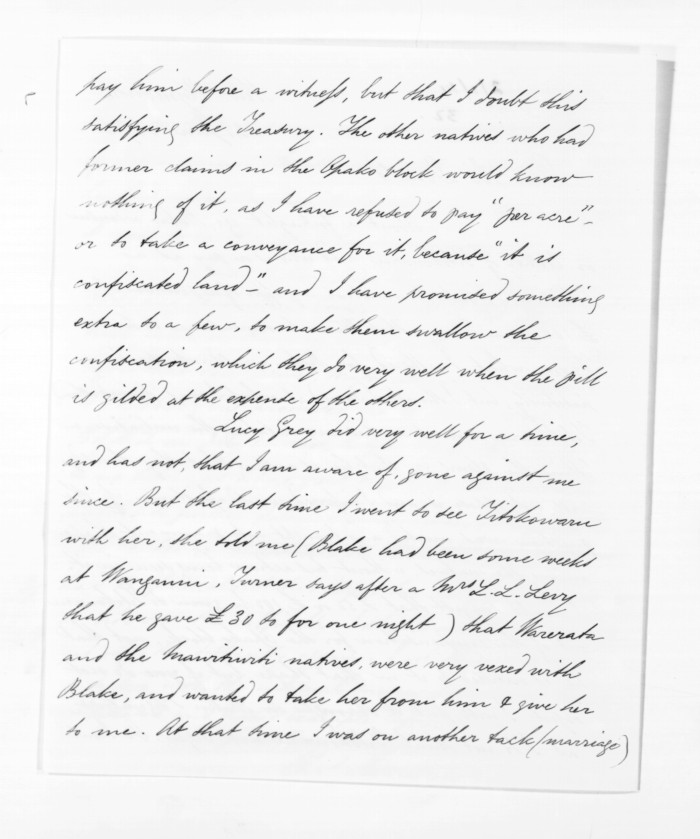 pay him before a witness, but that I doubt this
satisfying the Treasury. The other natives who had
former claims in the Opako block would know
nothing of it, as I have refused to pay "per acre" -
or to take a conveyance for it, because "it is
confiscated land -" and I have promised something
extra to a few, to make them swallow the
confiscation, which they do very well when the pill
is gilded at the expense of the others.
Lucy Grey did very well for a time,
and has not, that I am aware of, gone against me
since. But the last time I went to see Titokowaru
with her, she told me (Blake had been some weeks
at Wanganui, Turner says after a Mrs L. L. Levy
that he gave £30 to for one night) that Warerata
and the Mawitiwiti natives, were very vexed with
Blake, and wanted to take her from him & give her
to me. At that time I was on another tack (marriage)